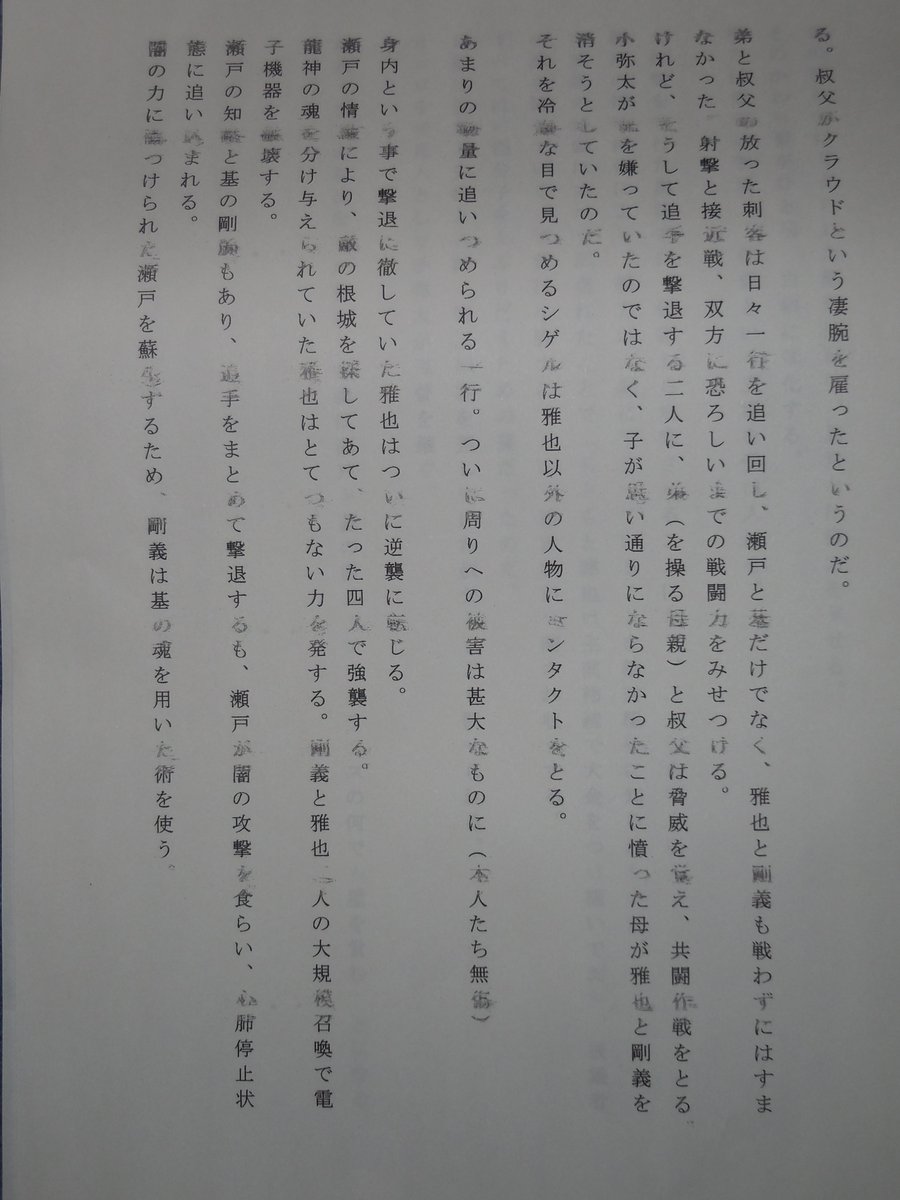 る。叔父がクラウドという凄腕を雇ったというのだ。
弟と叔父の放った刺客は日々一行を追い回し、瀬戸と基だけでなく、雅也と剛義も戦わずにはすま
なかった。射撃と接近戦、双方に恐ろしいまでの戦闘力をみせつける。
けれど、そうして追手を撃退する二人に、弟（を操る母親）と叔父は脅威を覚え、共闘作戦をとる。
小弥太が を嫌っていたのではなく、子が思い通りにならなかったことに憤った母が雅也と剛義を
消そうとしていたのだ。
それを冷静な目で見つめるシゲルは雅也以外の人物にコンタクトをとる。
あまりの物量に追いつめられる一行。ついには周りへの被害は甚大なものに（本人たち無傷）
身内という事で撃退に徹していた雅也はついに逆襲に転じる。
瀬戸の情報により、敵の根城を探してあて、たった四人で強襲する。
龍神の魂を分け与えられていた雅也はとてつもない力を発する。剛義と雅也二人の大規模召喚で電
子機器を破壊する。
瀬戸の知略と基の剛腕もあり、追手をまとめて撃退するも、瀬戸が闇の攻撃を食らい、心肺停止状
態に追い込まれる。
闇の力に傷つけられた瀬戸を蘇生するため、剛義は基の魂を用いた術を使う。